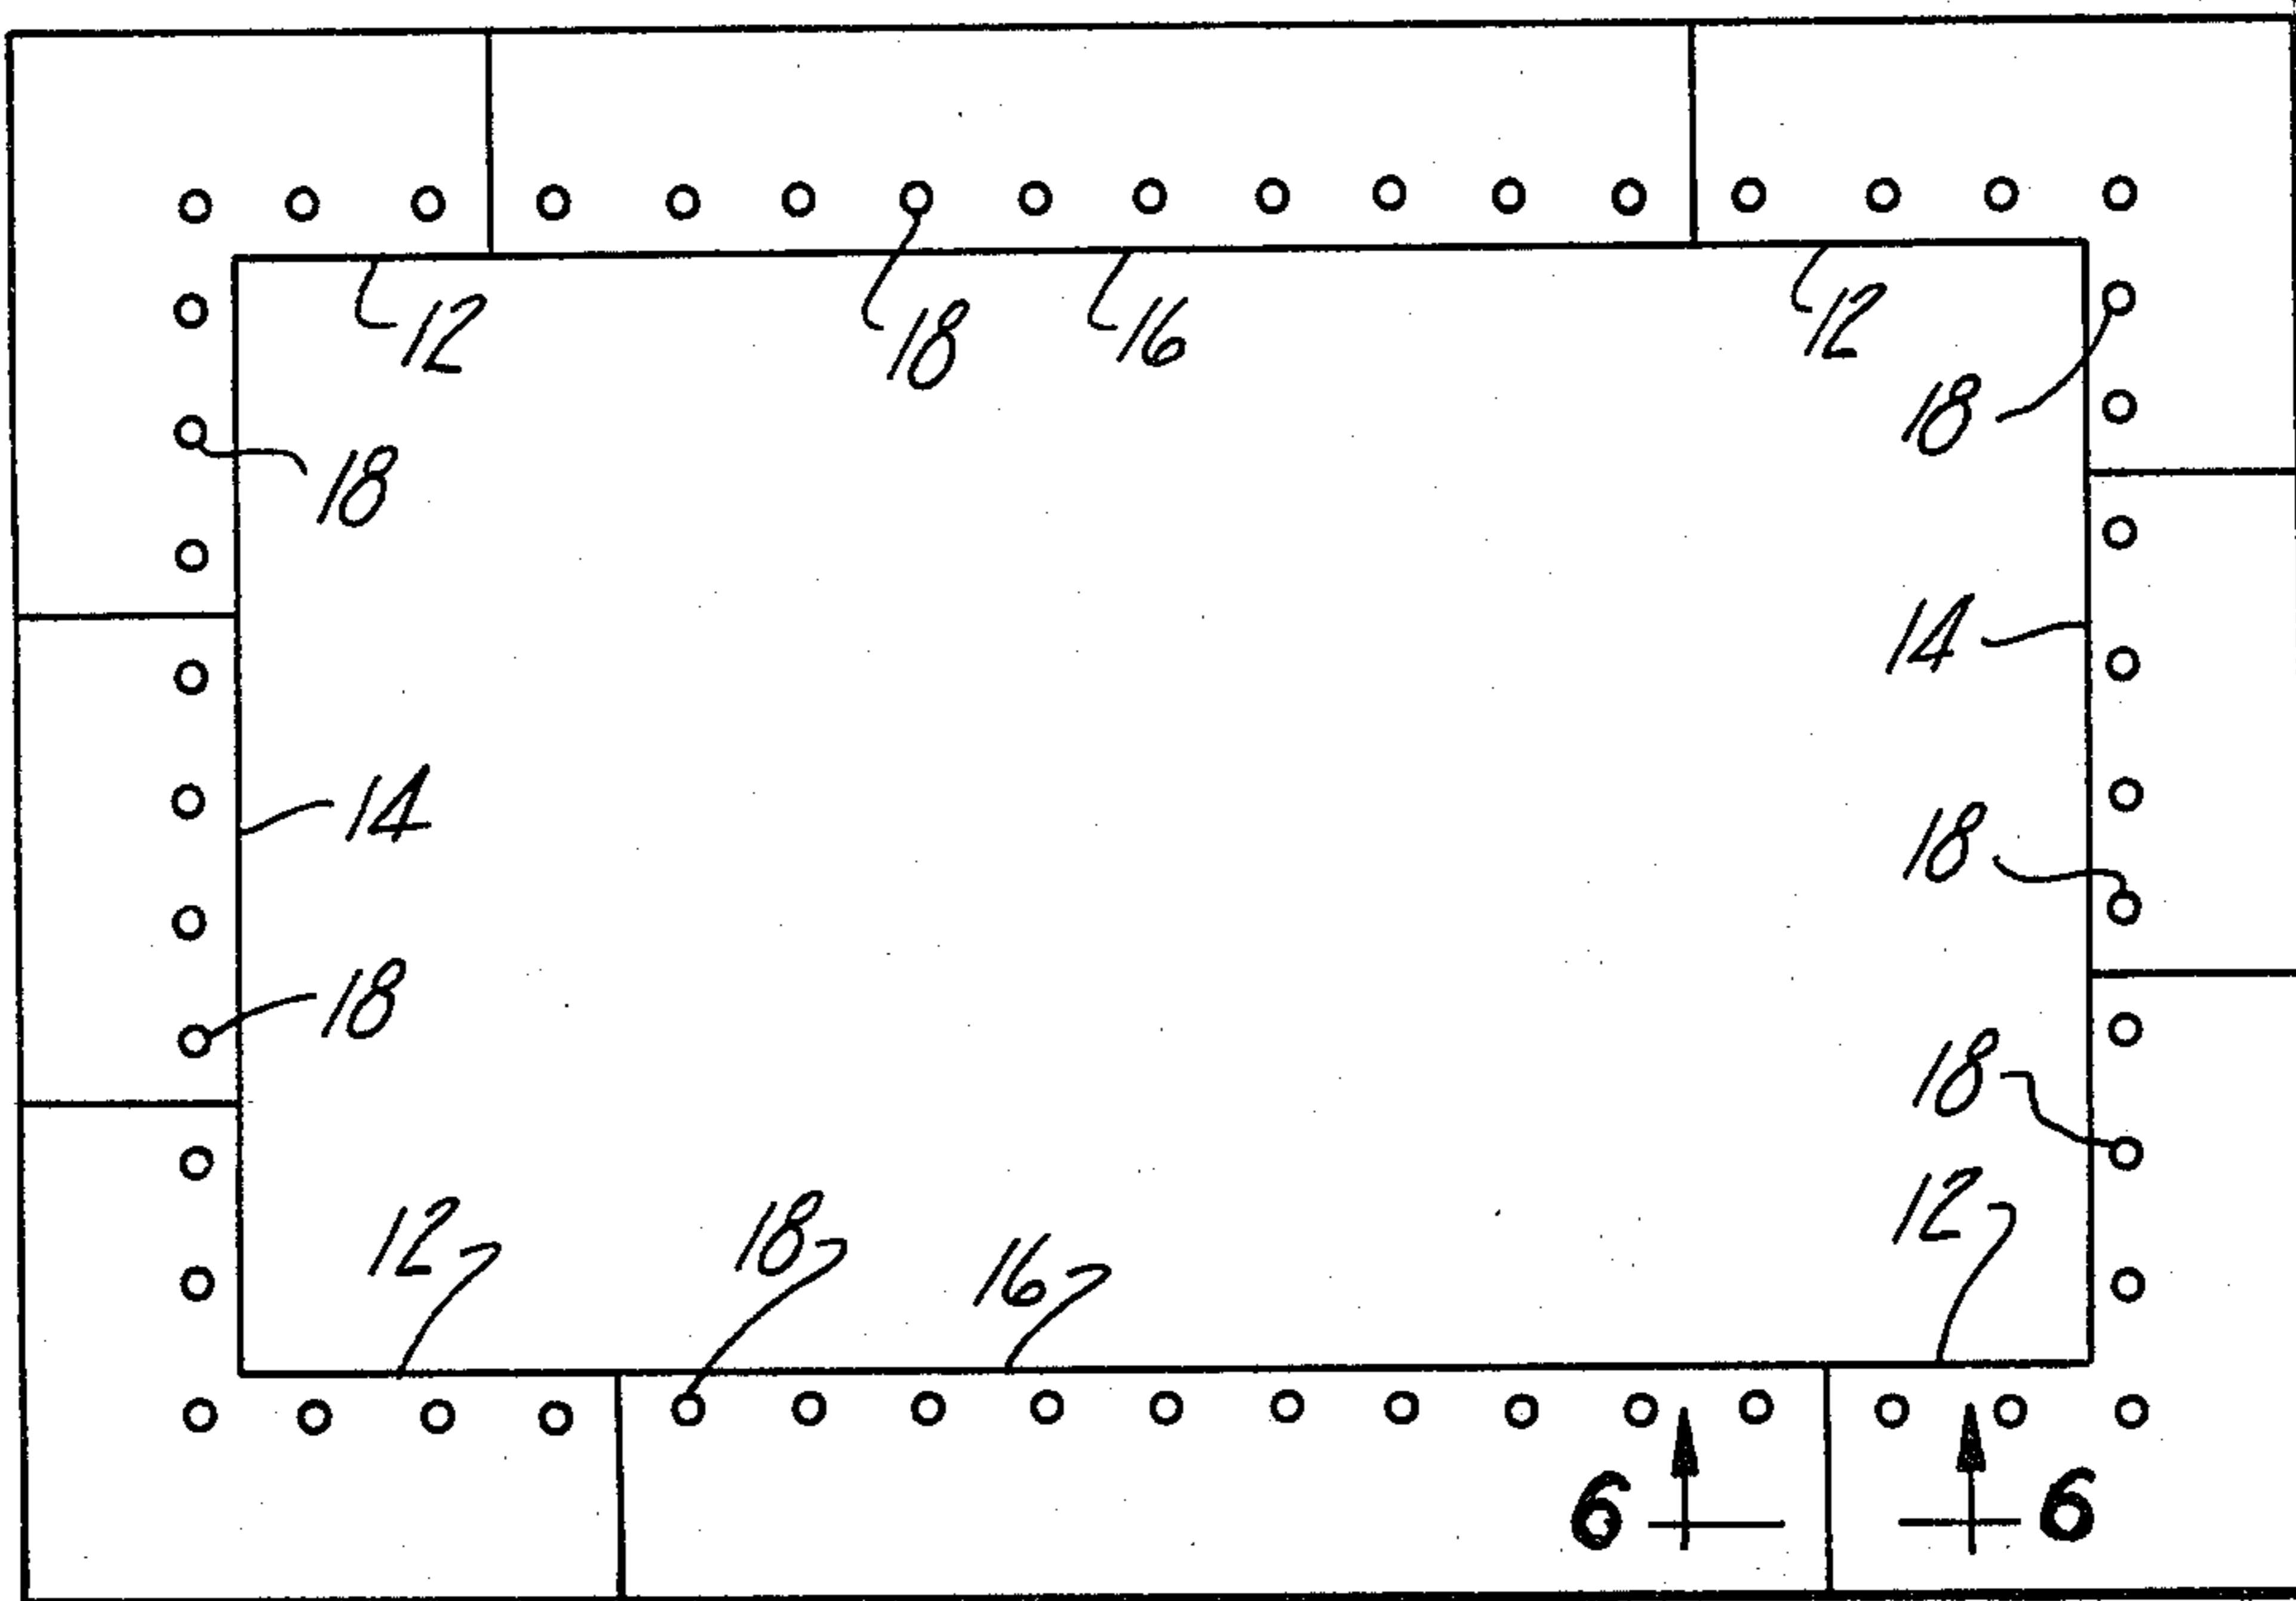 12
18
16
12
18
18
14
14
18
18
18
12
18
16
12
6
6